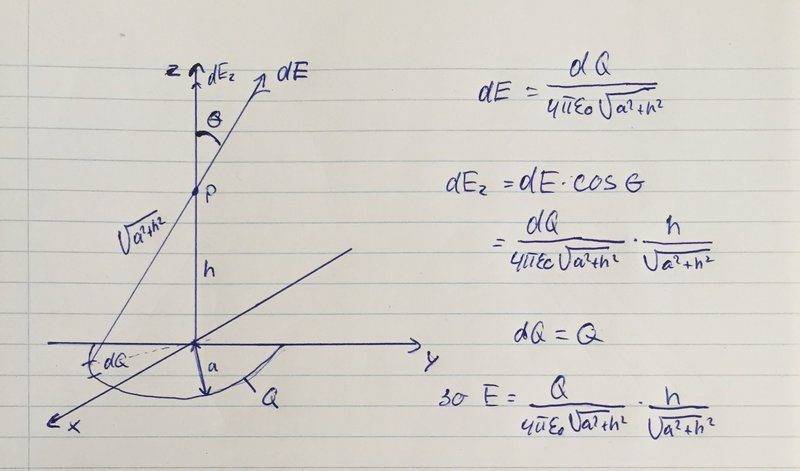 z
dE₂
dE
θ
P
√a²+h²
h
dQ
a
Q
x
y
dE = dQ / 4πε₀√a²+h²
dE₂ = dE · cos θ
= dQ / 4πε₀√a²+h² · h / √a²+h²
dQ = Q
so E = Q / 4πε₀√a²+h² · h / √a²+h²